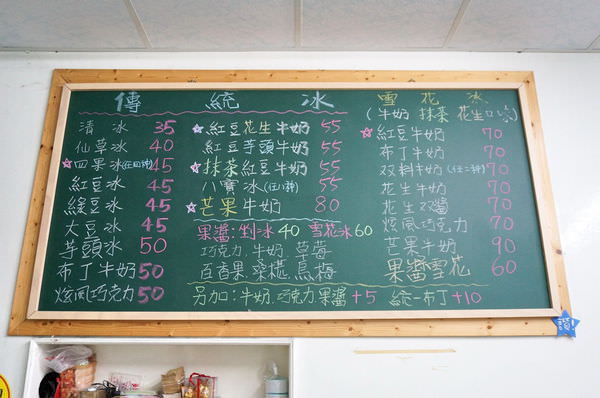 傳統冰
清冰 35
仙草冰 40
☆四果冰(任四種) 45
紅豆冰 45
綠豆冰 45
大豆冰 45
芋頭冰 50
布丁牛奶 50
炫風巧克力 50
☆紅豆花生牛奶 55
紅豆芋頭牛奶 55
☆抹茶紅豆牛奶 55
八寶冰(任八種) 55
☆芒果牛奶 80
果醬:剉冰40 雪花冰60
巧克力.牛奶.草莓
百香果.桑椹.烏梅
另加:牛奶.巧克力.果醬+5 統一布丁+10
雪花冰
(牛奶 抹茶 花生口味)
☆紅豆牛奶 70
布丁牛奶 70
双料牛奶(任二種) 70
花生牛奶 70
花生双醬 70
炫風巧克力 70
芒果牛奶 90
果醬雪花 60
讚!